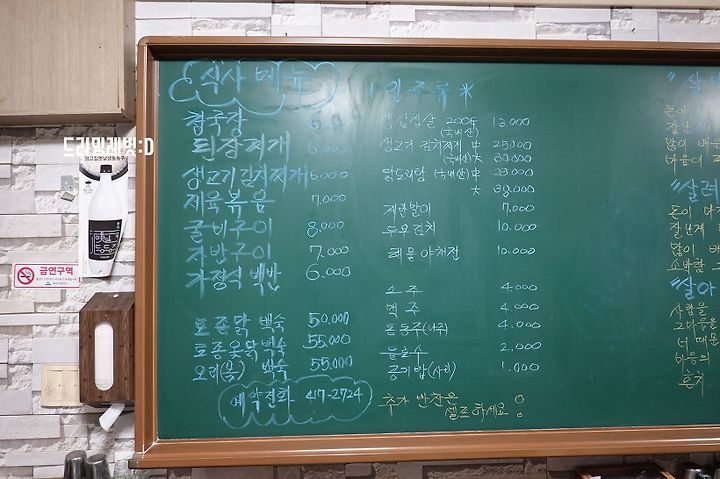 식사 메뉴
청국장 6.000
된장찌개 6.000
생고기 김치찌개 6000
제육볶음 7.000
굴비구이 8.000
자반구이 7.000
가정식 백반 6.000
토종닭 백숙 50.000
토종옻닭 백숙 55.000
오리(옻) 백숙 55.000
예약전화 417-2724
안주류
생삼겹살 200g 13.000
(국내산)
생고기 김치찌개 中 25.000
(국내산) 大 30.000
닭도리탕 (국내산) 中 28.000
大 38.000
계란말이 7.000
두부김치 10.000
해물 야채전 10.000
소주 4.000
맥주 4.000
동동주(나주) 4.000
음료수 2.000
공기밥(사리) 1.000
추가 반찬은
셀프하세요!
돈이
많이 배
"살려
돈이
많이 배
소박한
"살아
사람을
그리움을
너 때문
마음의
드리밀래빗:D
금연구역